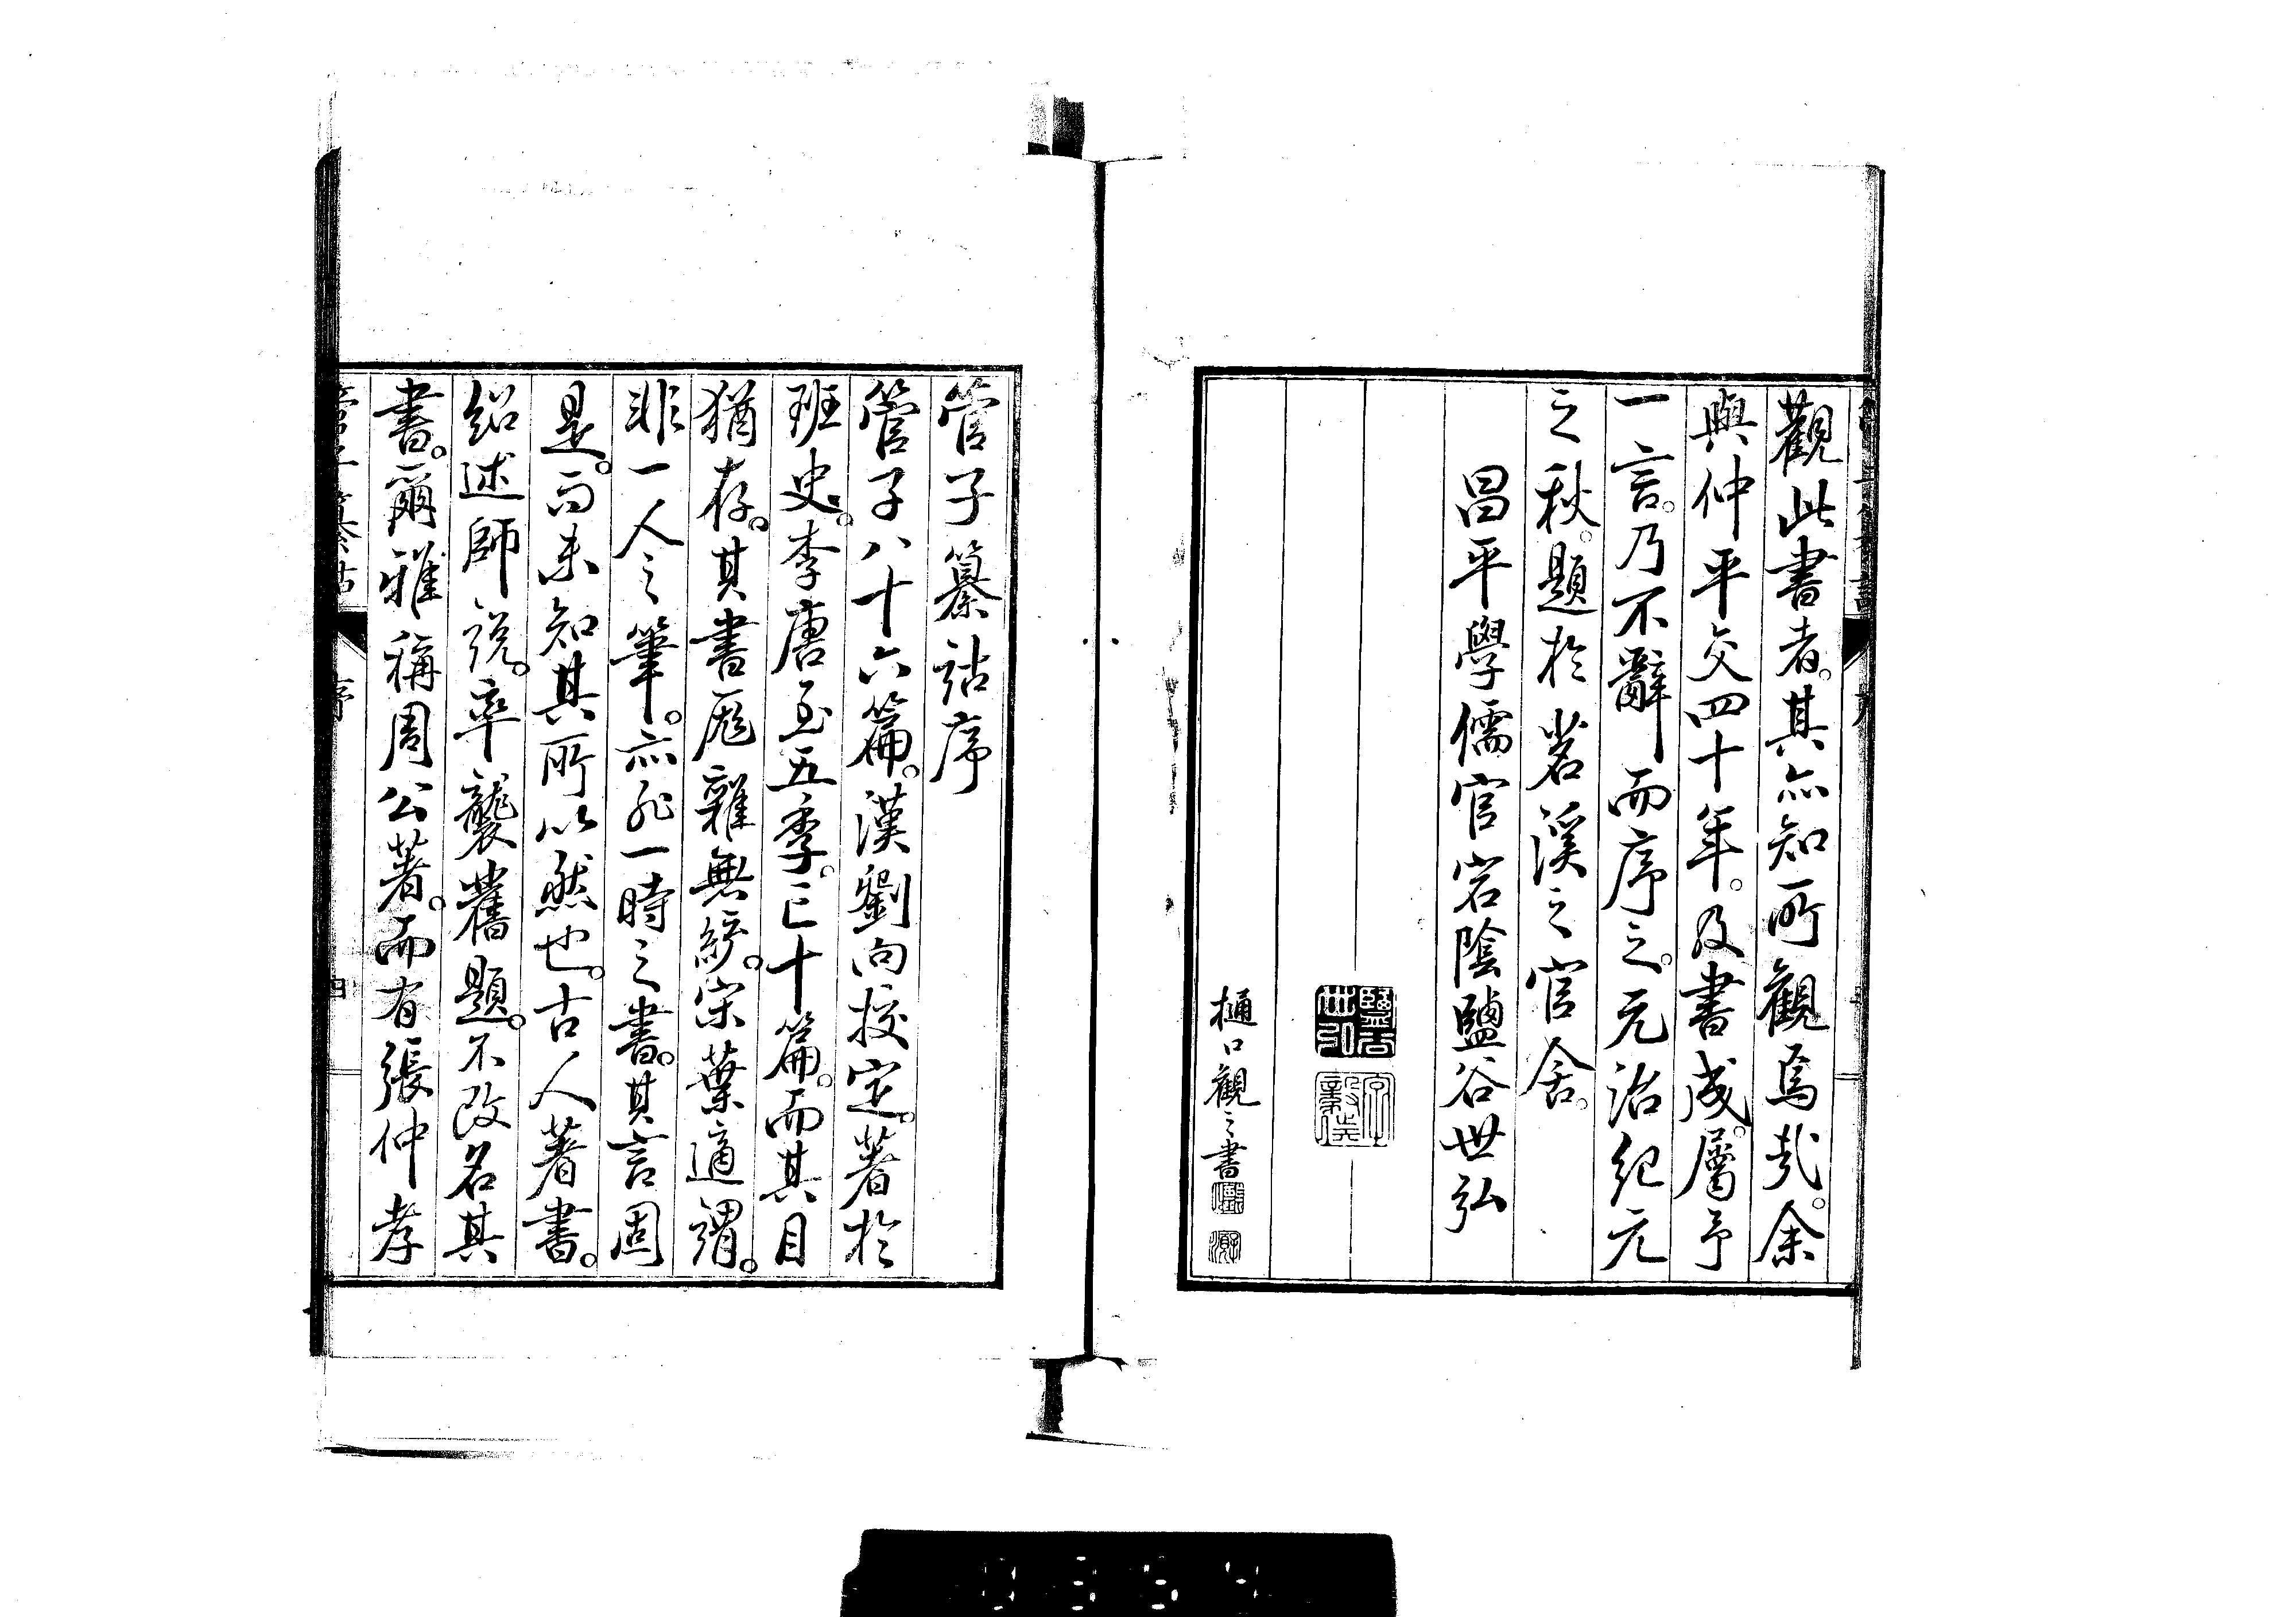 觀此書者。其亦知所觀焉哉。余
與仲平交四十年。及書成。屬予
一言。乃不辭而序之。元治紀元
之秋。題於茗溪之官舍。
昌平學儒官宕陰鹽谷世弘
樋口觀之書
管子纂詁序
管子八十六篇。漢劉向校定。著於
班史。李唐至五季。亡十篇。而其目
猶存。其書厖雜無統。宋葉適謂。
非一人之筆。亦非一時之書。其言固
是。而未知其所以然也。古人著書。
紹述師說。率襲舊題。不改名其
書。爾雅稱周公著。而有張仲孝